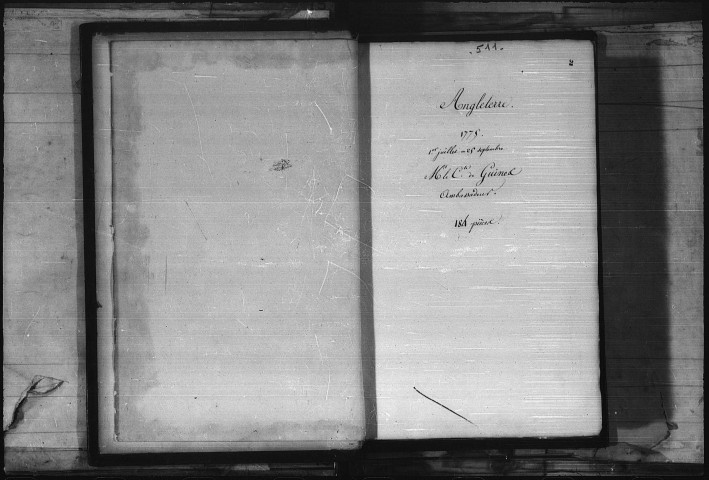 511.
2
Angleterre.
1775.
1er juillet = 25 septembre
Mr. le Cte. de Guines
Ambassadeur.
181 pièces.